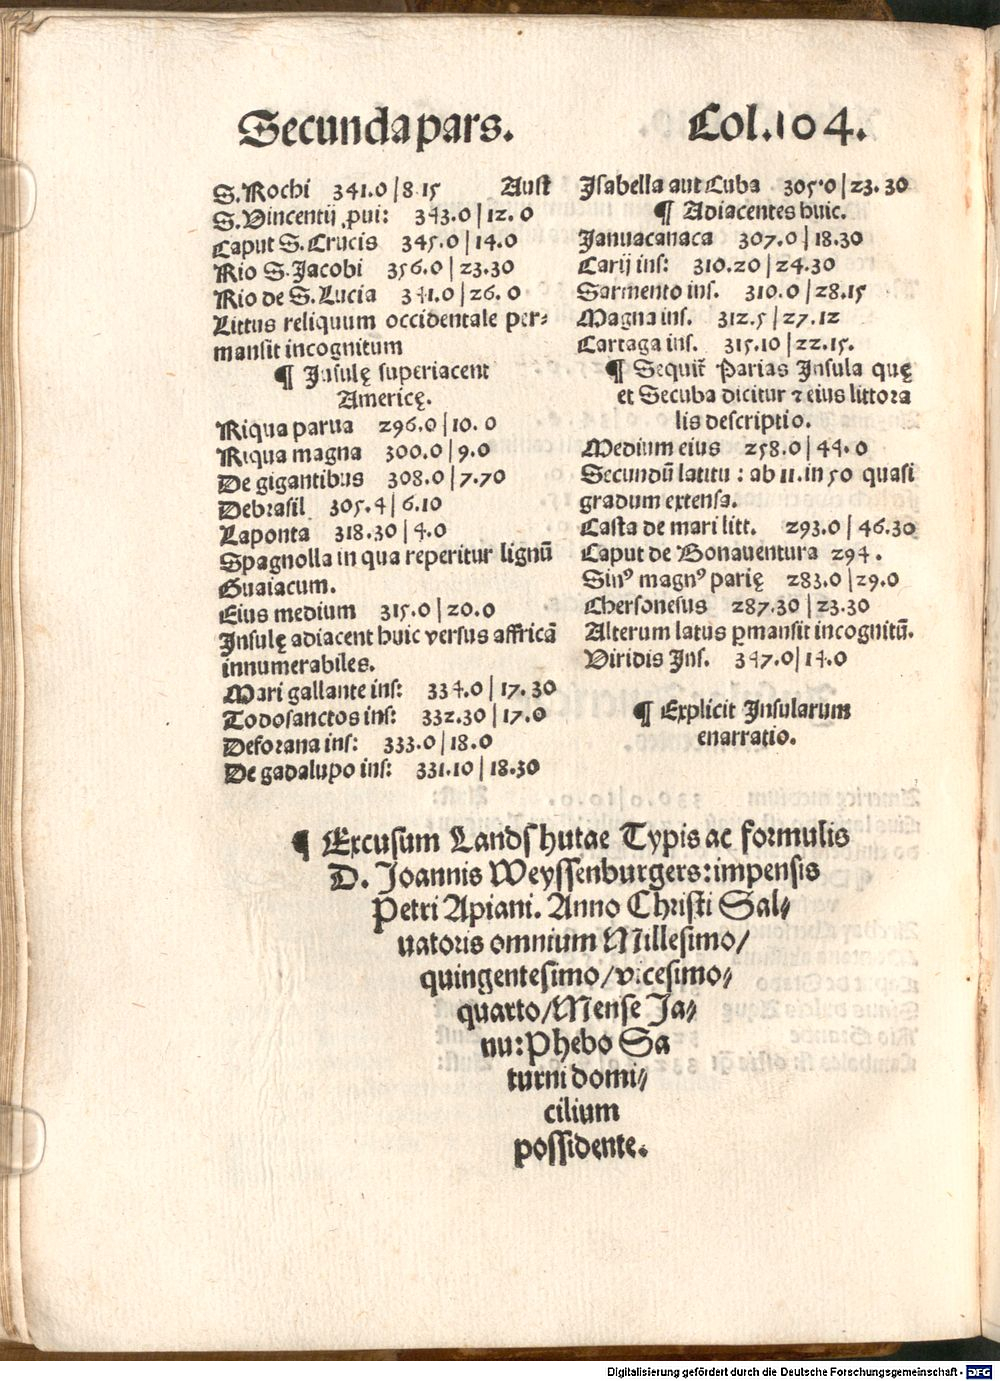 Secunda pars. Col. 104.
S. Rochi 341.0 | 8 15 Aust
S. Vincentij ꝓui: 343.0 | 12. 0
Caput S. Crucis 345.0 | 14.0
Rio S. Jacobi 356.0 | 23.30
Rio de S. Lucia 341.0 | 26. 0
Littus reliquum occidentale per⸗
mansit incognitum
¶ Insulę superiacent
Americę.
Riqua parua 296.0 | 10. 0
Riqua magna 300.0 | 9.0
De gigantibus 308.0 | 7.70
Debrasil 305.4 | 6.10
Laponta 318.30 | 4.0
Spagnolla in qua reperitur lignū
Guaiacum.
Eius medium 315.0 | 20.0
Insulę adiacent huic versus affricā
innumerabiles.
Mari gallante ins: 334.0 | 17. 30
Todosanctos ins: 332.30 | 17.0
Deforana ins: 333.0 | 18.0
De gadalupo ins: 331.10 | 18.30
Isabella aut Cuba 305.0 | 23. 30
¶ Adiacentes huic.
Januacanaca 307.0 | 18.30
Carij ins: 310.20 | 24.30
Sarmento ins. 310.0 | 28.15
Magna ins. 312.5 | 27.12
Cartaga ins. 315.10 | 22.15.
¶ Sequit᷑ Parias Insula quę
et Secuba dicitur ⁊ eius littora
lis descriptio.
Medium eius 258.0 | 44.0
Secundū latitu : ab 11. in 50 quasi
gradum extensa.
Casta de mari litt. 293.0 | 46.30
Caput de Bonauentura 294.
Sinꝰ magnꝰ parię 283.0 | 29.0
Chersonesus 287.30 | 23.30
Alterum latus ꝑmansit incognitū.
Viridis Ins. 347.0 | 14.0
¶ Explicit Insularum
enarratio.
¶ Excusum Landshutae Typis ac formulis
D. Joannis Weyssenburgers: impensis
Petri Apiani. Anno Christi Sal⸗
uatoris omnium Millesimo/
quingentesimo/vicesimo⸗
quarto/Mense Ja⸗
nu: Phebo Sa
turni domi⸗
cilium
possidente.
Digitalisierung gefördert durch die Deutsche Forschungsgemeinschaft - DFG